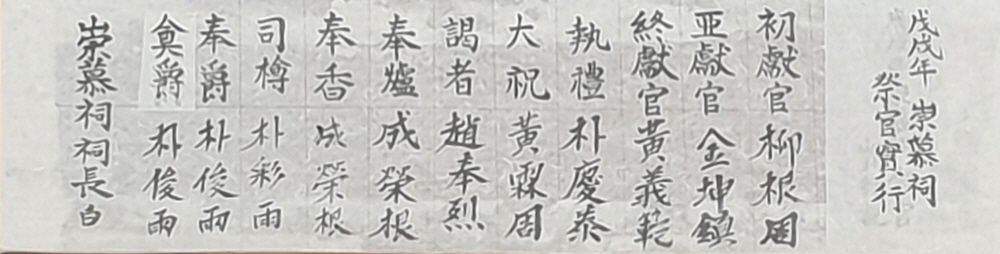 戊戌年 崇慕祠
祭官實行
初獻官 柳根周
亚獻官 金坤鎮
終獻官 黃義範
執禮 朴慶泰
大祝 黃霖周
謁者 趙奉烈
奉爐 成榮根
奉香 成榮根
司樽 朴彩雨
奉爵 朴俊雨
奠爵 朴俊雨
崇慕祠祠長白